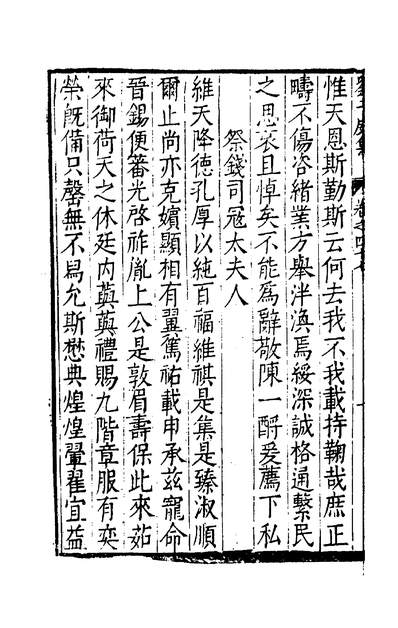 惟天恩斯勤斯云何去我不我載持鞠哉庶正
疇不傷咨緒業方舉泮渙焉綏深誠格通繫民
之思哀且悼矣不能爲辭敬陳一酹爰薦下私
祭錢司寇太夫人
維天降德孔厚以純百福維祺是集是臻淑順
爾止尚亦克嬪顯相有翼篤祐載申承茲寵命
晉錫便蕃光啓祚胤上公是敦眉壽保此來茹
來御荷天之休廷內禮賜九階章服有奕
榮旣備只罄無不爲允斯懋典煌煌翬翟宜益